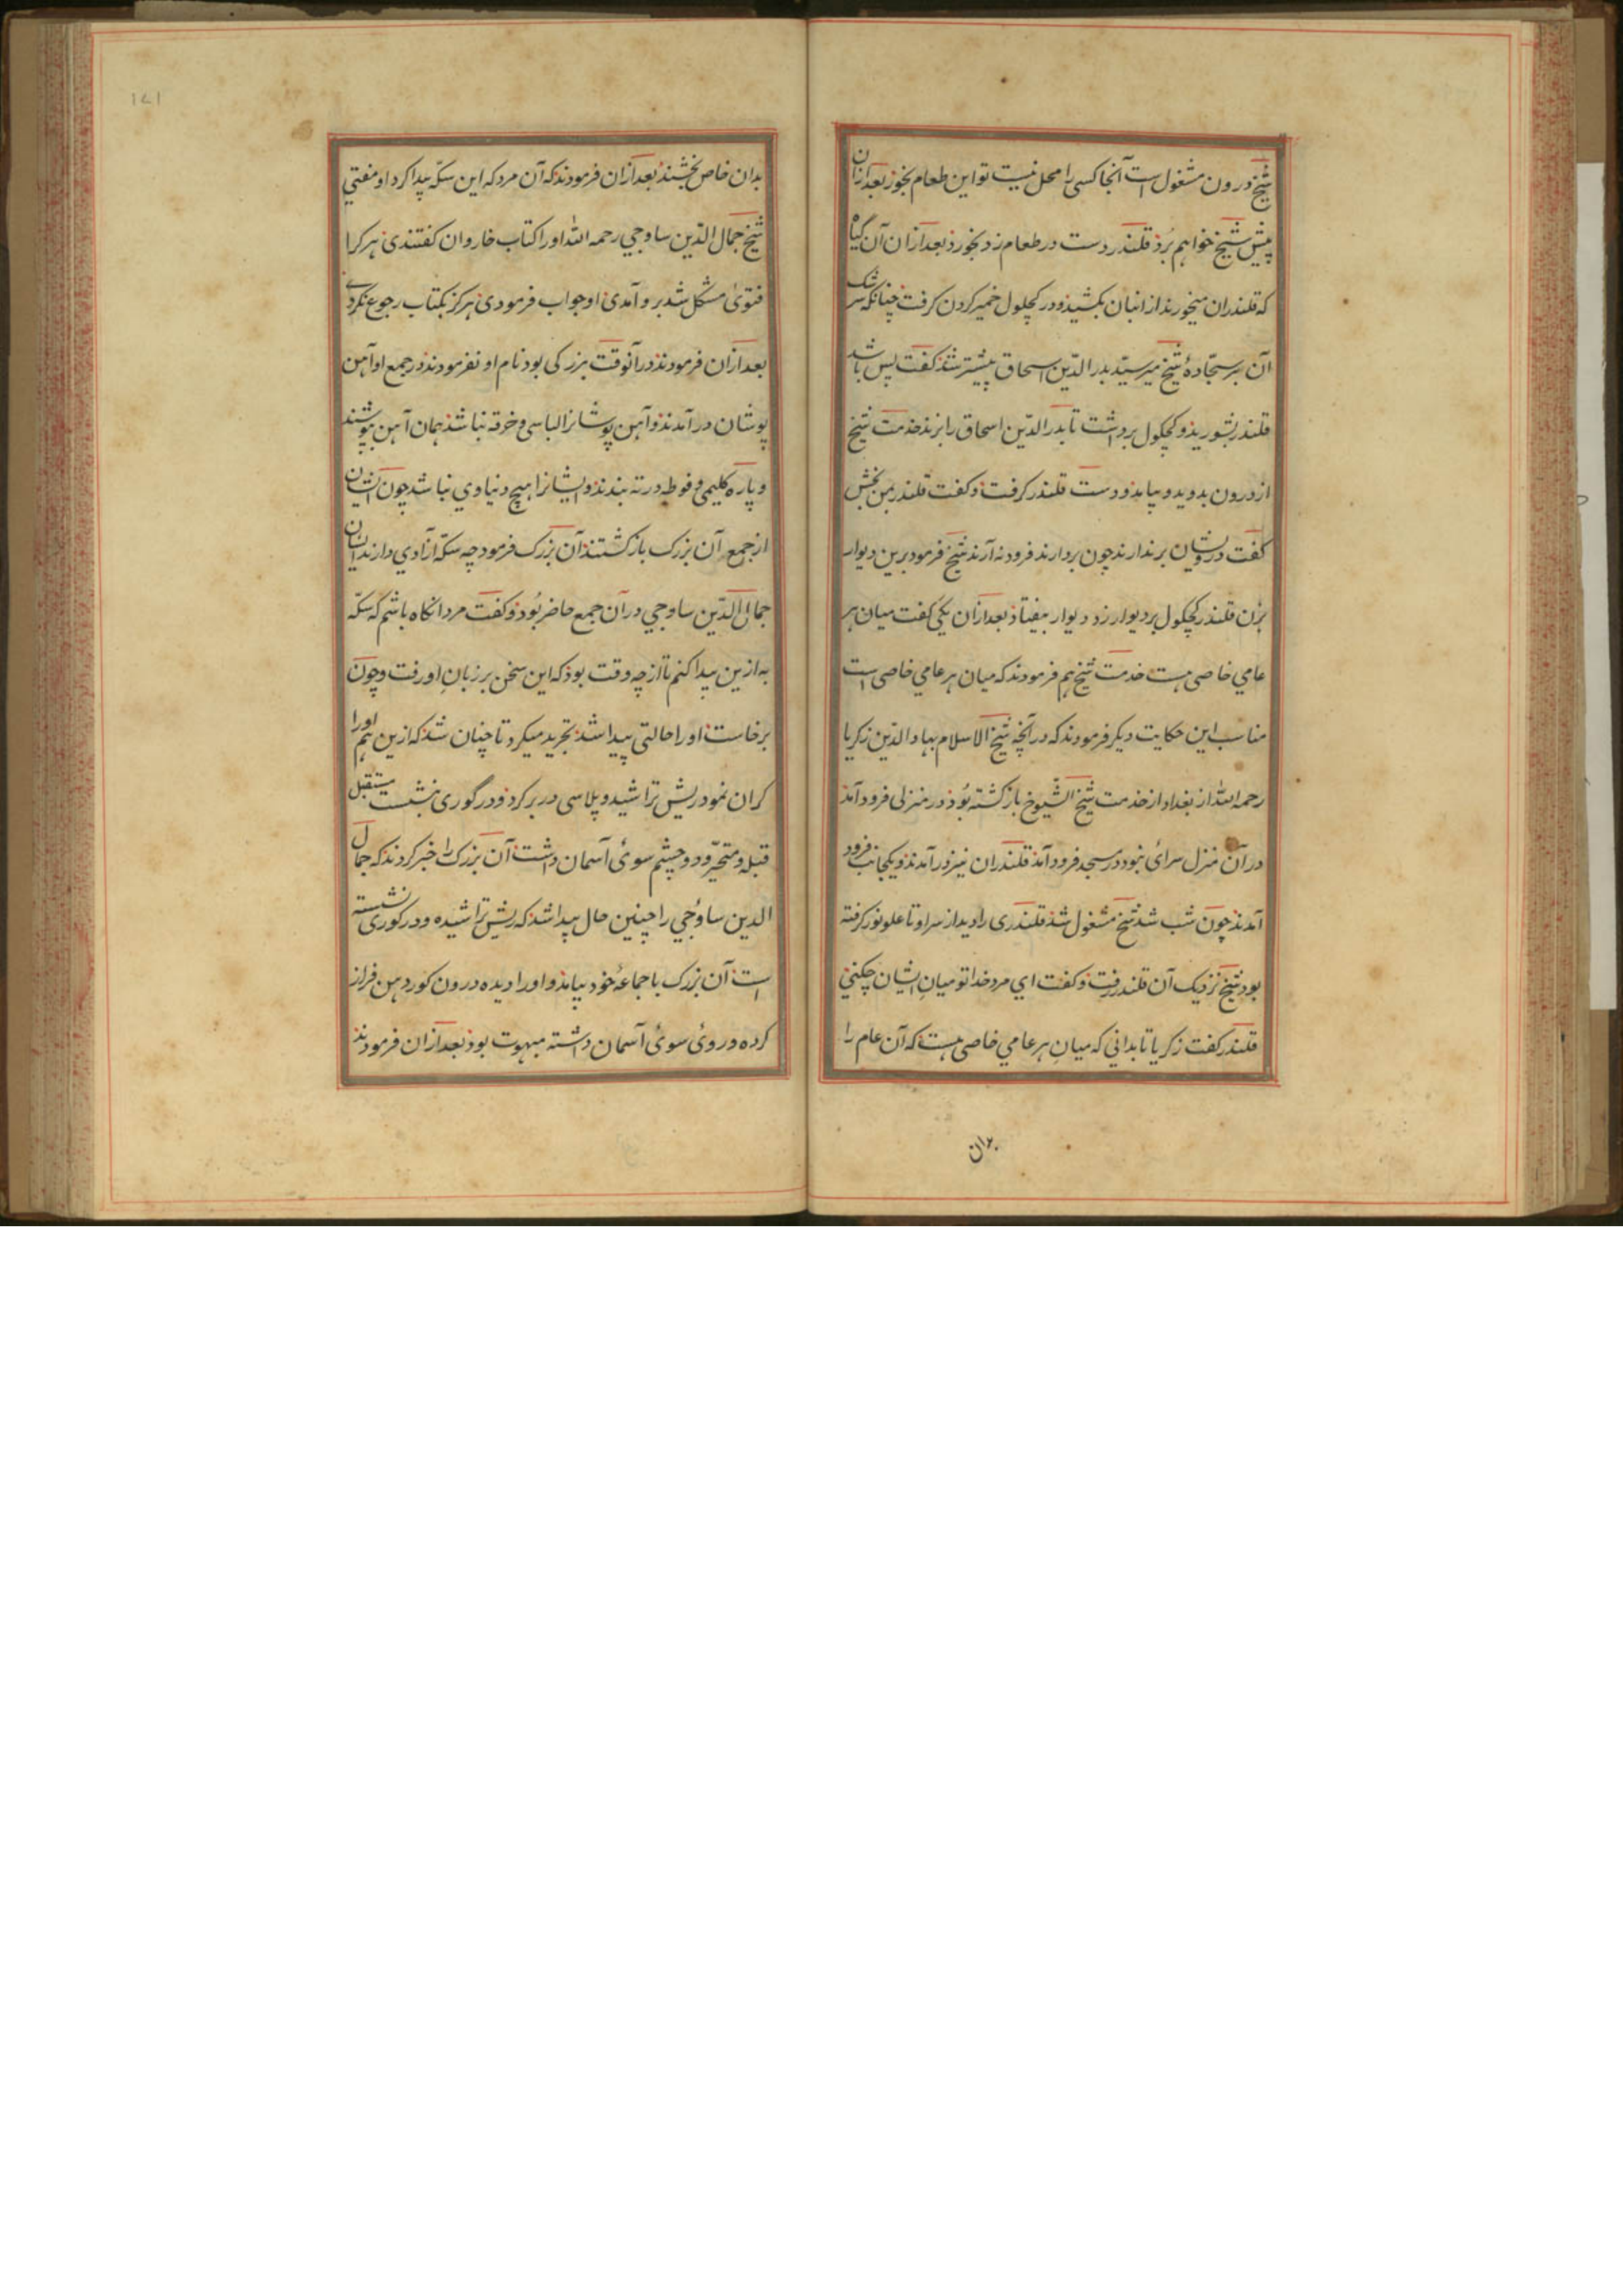 شیخ درون مشغول است آنجا کسی را محل نیست تو این طعام بخور بعد ازان
پیش شیخ خواهم بُرد قلندر دست در طعام زد بخورد بعد ازان آن گیاه
که قلندران میخورند از انبان بکشید و در کچلول خمیر کردن کرفت چنانکه سرشک
آن بر سجّادهٔ شیخ میرسید بدر الدّین اسحاق پیشتر شد کفت پس باشد
قلندر بشورید و کچکول برداشت تا بدر الدّین اسحاق را بزند خدمت شیخ
از درون بدوید و بیامد و دست قلندر کرفت و کفت قلندر بمن بخش
کفت درویشان بر ندارند چون بردارند فرود نه آرند شیخ فرمود برین دیوار
بزن قلندر کچکول بر دیوار زد دیوار بیفتاد بعد ازان یکی کفت میان هر
عامي خاصی هست خدمت شیخ هم فرمودند که میان هر عامي خاصی است
مناسب این حکایت دیکر فرمودند که در آنچه شیخ الاسلام بهاء الدین زکریا
رحمه الله از بغداد از خدمت شیخ الشیوخ باز کشته بُود در منزلی فرود آمد
در آن منزل سرائ نبود در مسجد فرود آمد قلندران نیز در آمدند و یکجانب فرود
آمدند چون شب شد شیخ مشغول شد قلندری را دید از سر او تا علو نور کرفته
بود شیخ نزدیک آن قلندر رفت و کفت اي مرد خدا تو میانِ ایشان چکني
قلندر کفت زکریا تا بداني که میانِ هر عامي خاصی هست که آن عام را
بدان
۱۷۱
بدان خاص بخشند بعد ازان فرمودند که آن مرد که این سکّه پیدا کرد او مفتي
شیخ جمال الدّین ساوجي رحمه الله او را کتاب خاروان کفتندی هر کرا
فتویٰ مشکل شد بر و آمدی او جواب فرمودی هرکز بکتاب رجوع نکردی
بعد ازان فرمودند در آنوقت بزرکی بود نام او نفرمودند در جمع او آهن
پوشان در آمدند و آهن پوشانرا لباسی و خرقه نباشد همان آهن بپوشند
و پاره کلیمی و فوطه در ته بندند و ایشانرا هیچ دنیاوي نباشد چون ایشان
از جمع آن بزرک باز کشتند آن بزرک فرمود چه سکّه آزادي دارند ایشان
جمال الدّین ساوجي در آن جمع حاضر بُود و کفت مرد انکاه باشم که سکّه
به ازین پیدا کنم تا از چه وقت بود که این سخن بر زبانِ او رفت و چون
برخاست او را حالتی پیدا شد تجرید میکرد تا چنان شد که ازین هم اورا
کران نمود ریش تراشید و پلاسی در بر کرد و در گوری بنشست مستقبل
قبله و متحیّر و دو چشم سوئ آسمان داشت آن بزرک را خبر کردند که جمال
الدین ساوُجي را چنین حال پیدا شد که ریش تراشیده و در کوری نشسته
است آن بزرک با جماعهٔ خود بیامد و او را دیده درون کور دهن فراز
کرده و روئ سوئ آسمان داشته مبهوت بود بعد ازان فرمودند